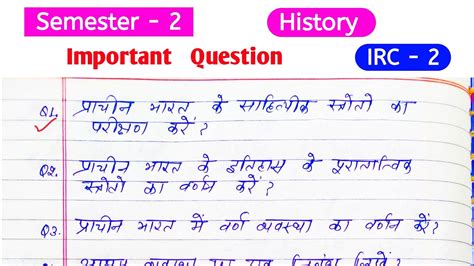 Semester - 2
History
Important Question
IRC - 2
Q1. प्राचीन भारत के साहित्यिक स्त्रोतो का
परीक्षण करें ?
Q2. प्राचीन भारत के इतिहास के पुरातात्विक
स्त्रोतो का वर्णन करें ?
Q3. प्राचीन भारत में वर्ण व्यवस्था का वर्णन करें ?